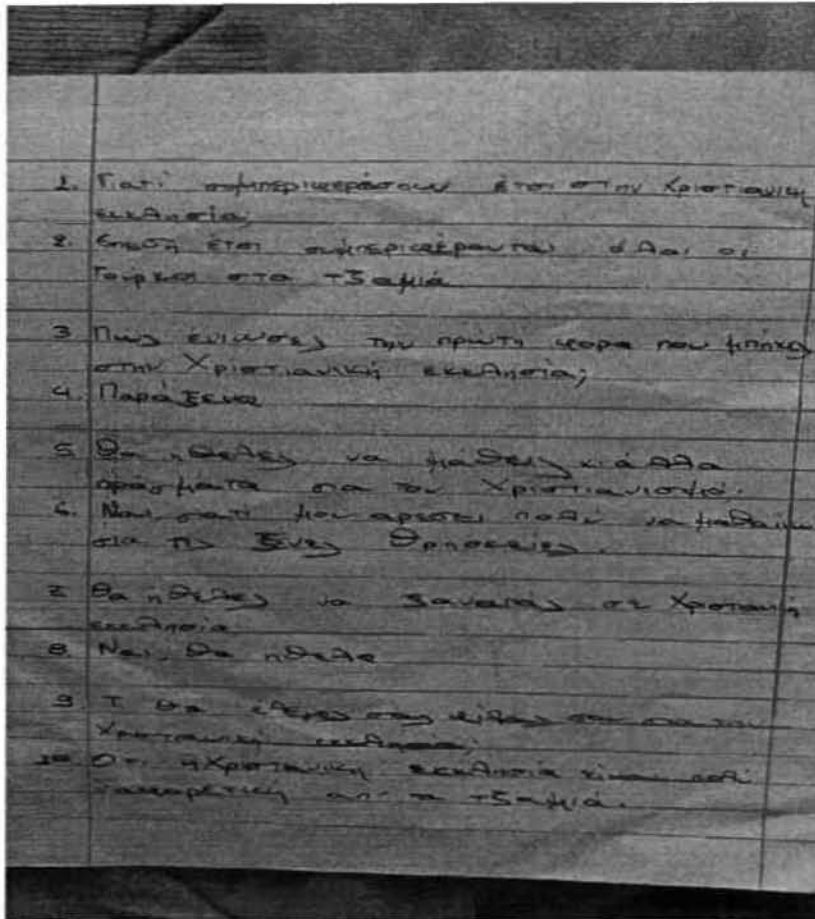 1. Γιατί συμπεριφερόσουν έτσι στην Χριστιανική
εκκλησία;
2. Επειδή έτσι συμπεριφέρονται όλοι οι
Τούρκοι στα τζαμιά
3 Πως ένιωσες την πρώτη φορα που μπήκες
στην Χριστιανική εκκλησία;
4. Παράξενα
5 Θα ηθελες να μάθεις κι άλλα
πράγματα για τον Χριστιανισμό.
6. Ναι, γιατί μου αρεσει πολύ να μαθαίνω
για τις ξένες Θρησκείες.
7 Θα ηθελες να ξαναπάς σε
εκκλησία
8. Ναι, θα ηθελα
9 Τ θα έλεγες στους φίλους σου για την
εκκλησία;
10 Οτι εκκλησία είναι πολύ
από τα τζαμιά.